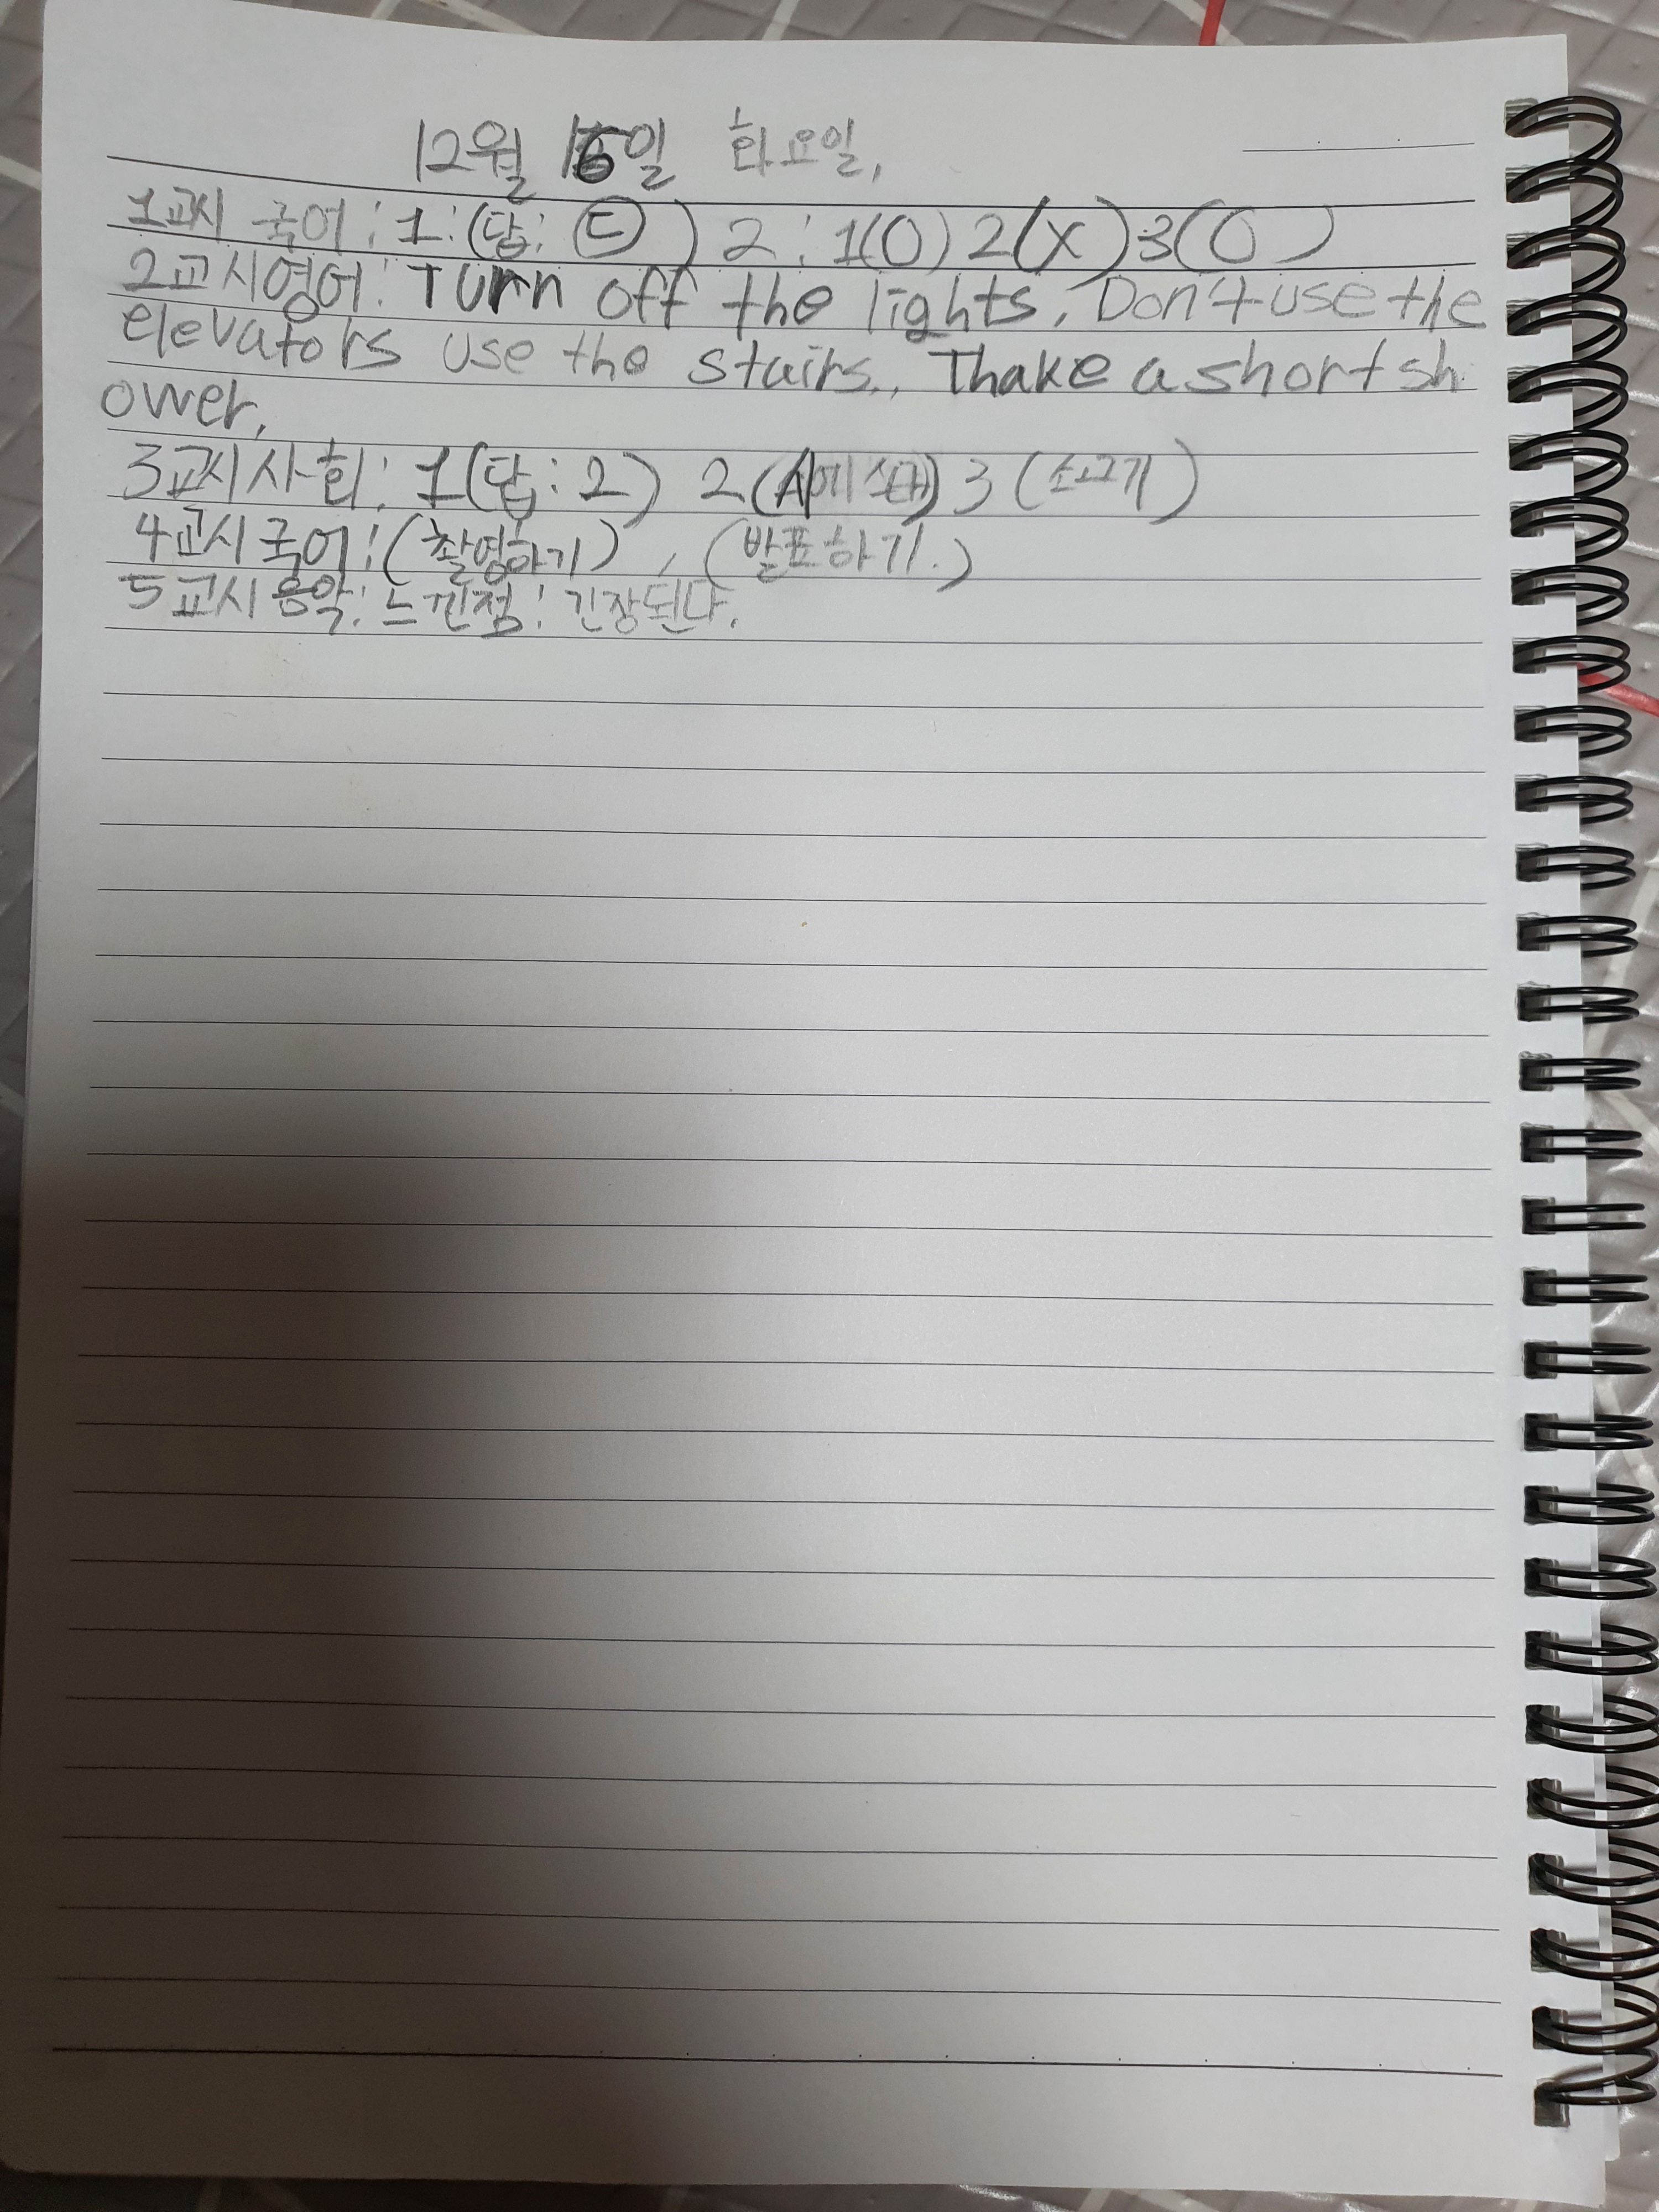 12월 16일 화요일,
1교시 국어: 1:(답: ㉢) 2: 1(O) 2(X) 3(O)
2교시영어: Turn off the lights, Don't use the
elevators use the stairs., Thake a short sh
ower,
3교시 사회: 1(답:2) 2( ) 3(소고기)
4교시 국어: (촬영하기), (발표하기.)
5교시 음악: 느낀점: 긴장된다.